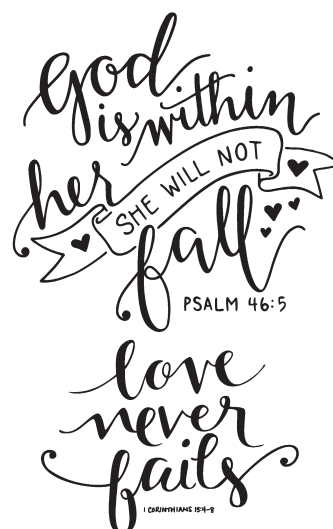 God
is within
her
SHE WILL NOT
fall
PSALM 46:5
love
never
fails
1 CORINTHIANS 13:4-8